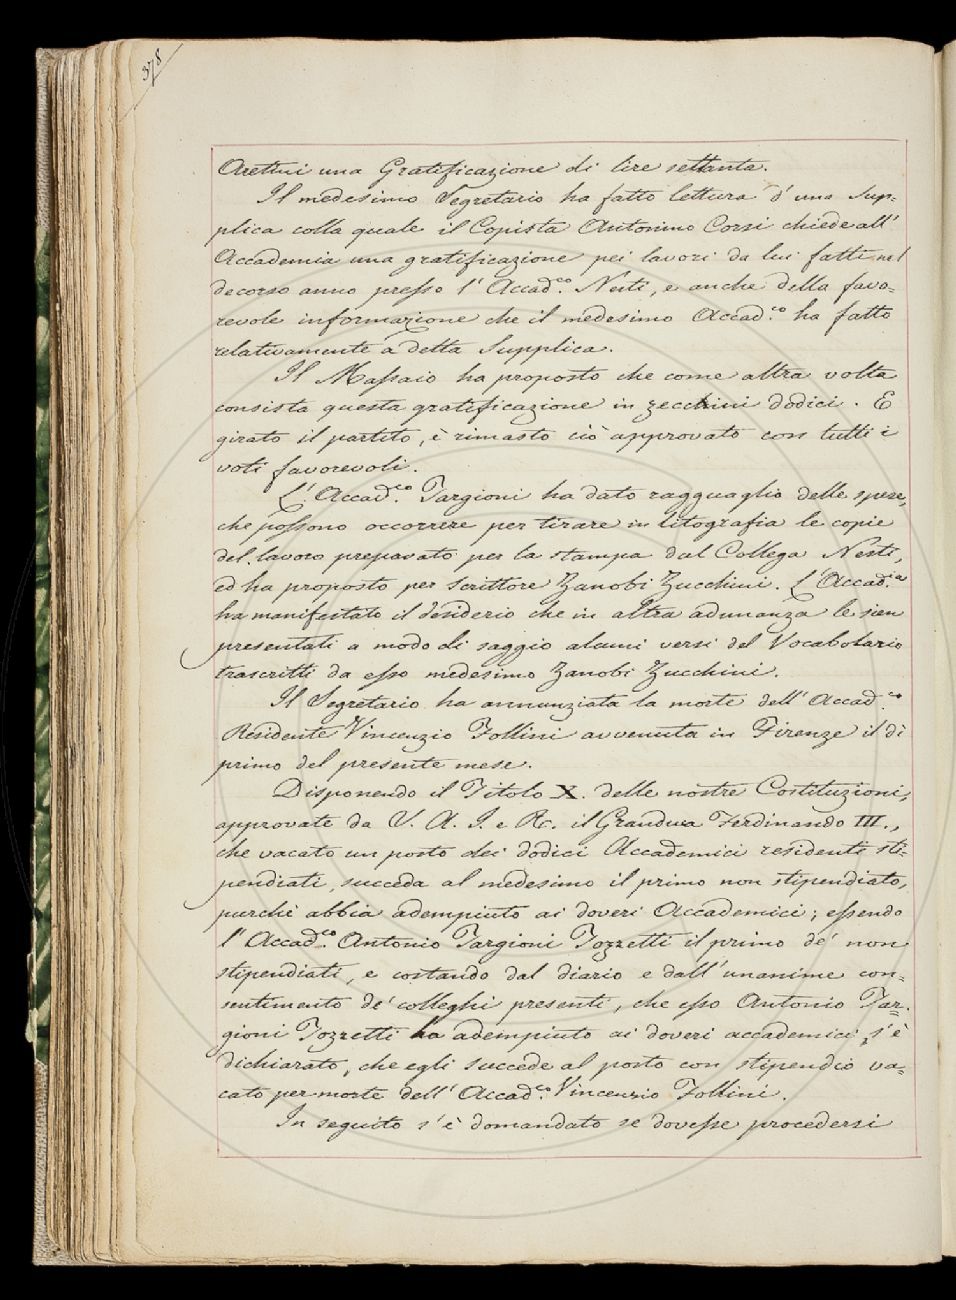 378
Aretini una Gratificazione di lire settanta.
Il medesimo Segretario ha fatto lettura d'una Sup=
plica colla quale il Copista Antonino Corsi chiede all'
Accademia una gratificazione pei lavori da lui fatti nel
decorso anno presso l'Accad.co Nesti, e anche della favo=
revole informazione che il medesimo Accad.co ha fatto
relativamente a detta Supplica.
Il Massaio ha proposto che come altra volta
consista questa gratificazione in zecchini dodici. E
girato il partito, è rimasto ciò approvato con tutti i
voti favorevoli.
L'Accad.co Targioni ha dato ragguaglio delle spese,
che possono occorrere per tirare in litografia le copie
del lavoro preparato per la stampa dal Collega Nesti,
ed ha proposto per scrittore Zanobi Zucchini. L'Accad.ia
ha manifestato il desiderio che in altra adunanza le sien
presentati a modo di saggio alcuni versi del Vocabolario
trascritti da esso medesimo Zanobi Zucchini.
Il Segretario ha annunziata la morte dell'Accad.co
Residente Vincenzio Follini avvenuta in Firenze il dì
primo del presente mese.
Disponendo il Titolo X. delle nostre Costituzioni,
approvate da S. A. I. e R. il Granduca Ferdinando III.,
che vacato un posto dei dodici Accademici residenti sti=
pendiati, succeda al medesimo il primo non stipendiato,
purchè abbia adempiuto ai doveri Accademici; essendo
l'Accad.co Antonio Targioni Tozzetti il primo de' non
stipendiati, e costando dal diario e dall'unanime con=
sentimento de' colleghi presenti, che esso Antonio Tar=
gioni Tozzetti ha adempiuto ai doveri accademici, s'è
dichiarato, che egli succede al posto con stipendio va=
cato per morte dell'Accad.co Vincenzio Follini.
In seguito s'è domandato se dovesse procedersi